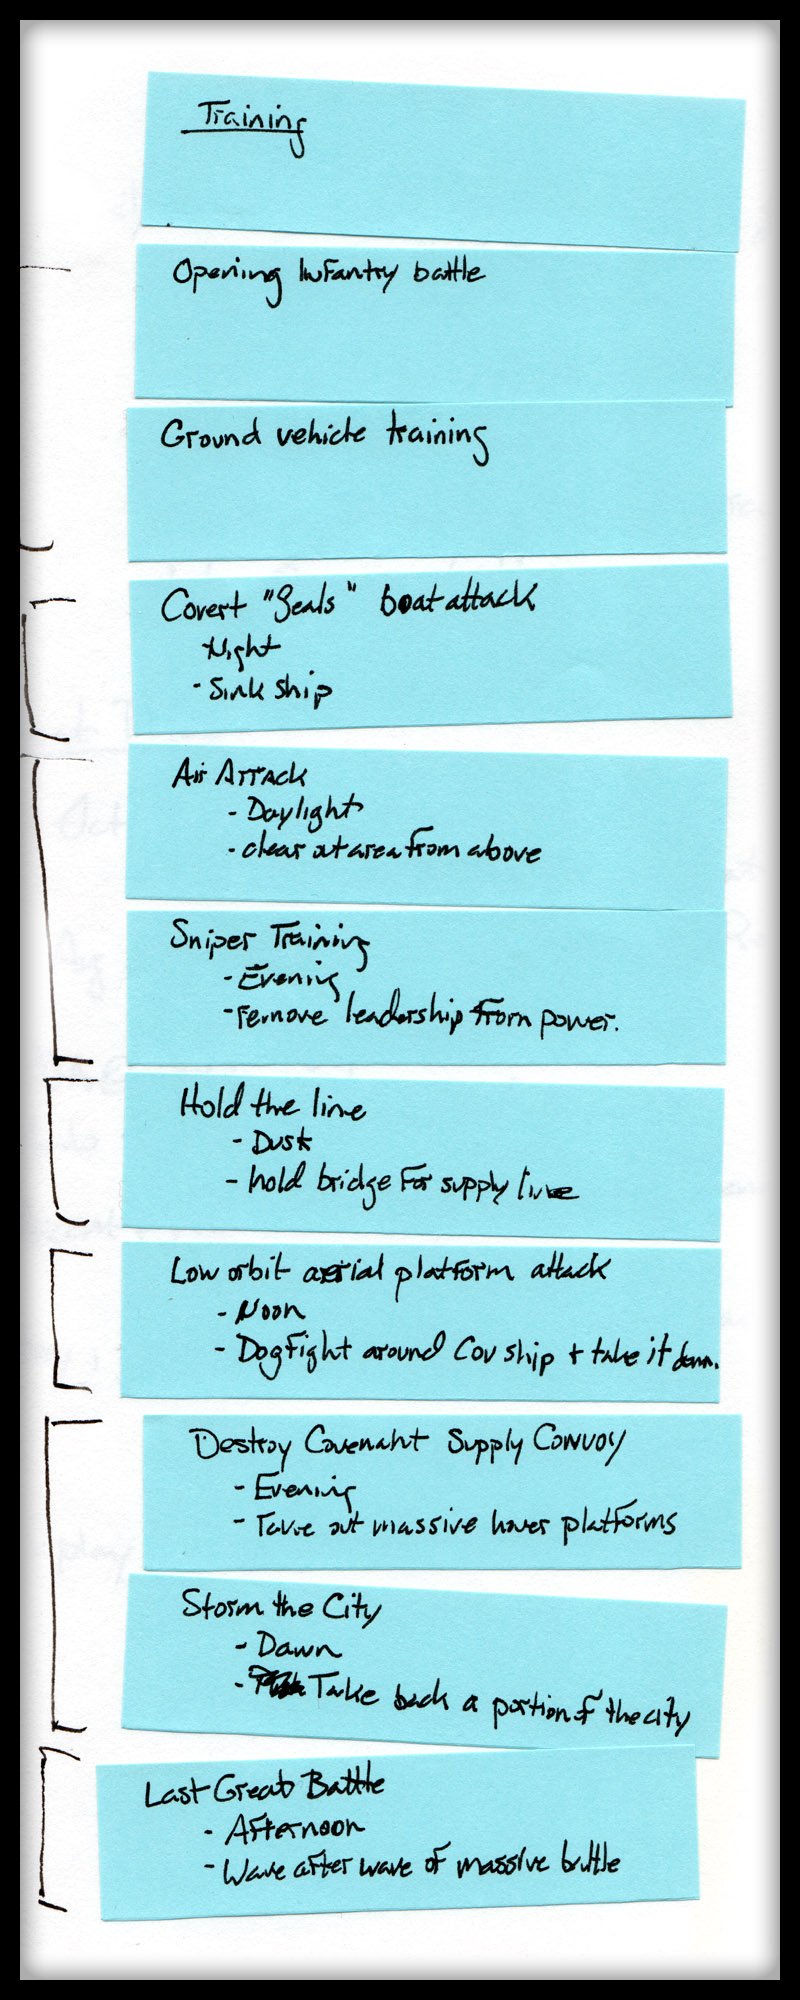 Training
Opening Infantry battle
Ground vehicle training
Covert "Seals" boat attack
Night
- Sink ship
Air Attack
- Daylight
- clear out area from above
Sniper Training
- Evening
- remove leadership from power.
Hold the line
- Dusk
- hold bridge for supply line
Low orbit aerial platform attack
- Noon
- Dogfight around Cov ship + take it down.
Destroy Covenant Supply Convoy
- Evening
- Take out massive hover platforms
Storm the City
- Dawn
- Take back a portion of the city
Last Great Battle
- Afternoon
- Wave after wave of massive battle